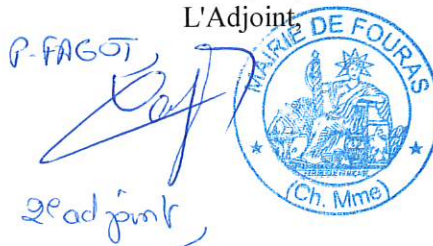 L'Adjoint,
P. FAGOT,
MAIRIE DE FOURAS
(Ch. Mme)
2e adjoint,